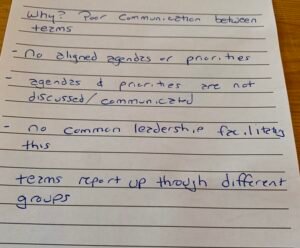 Why? Poor Communication between
teams
- No aligned agendas or priorities
- agendas & priorities are not
discussed/communicated
- no common leadership facilitating
this
teams report up though different
groups